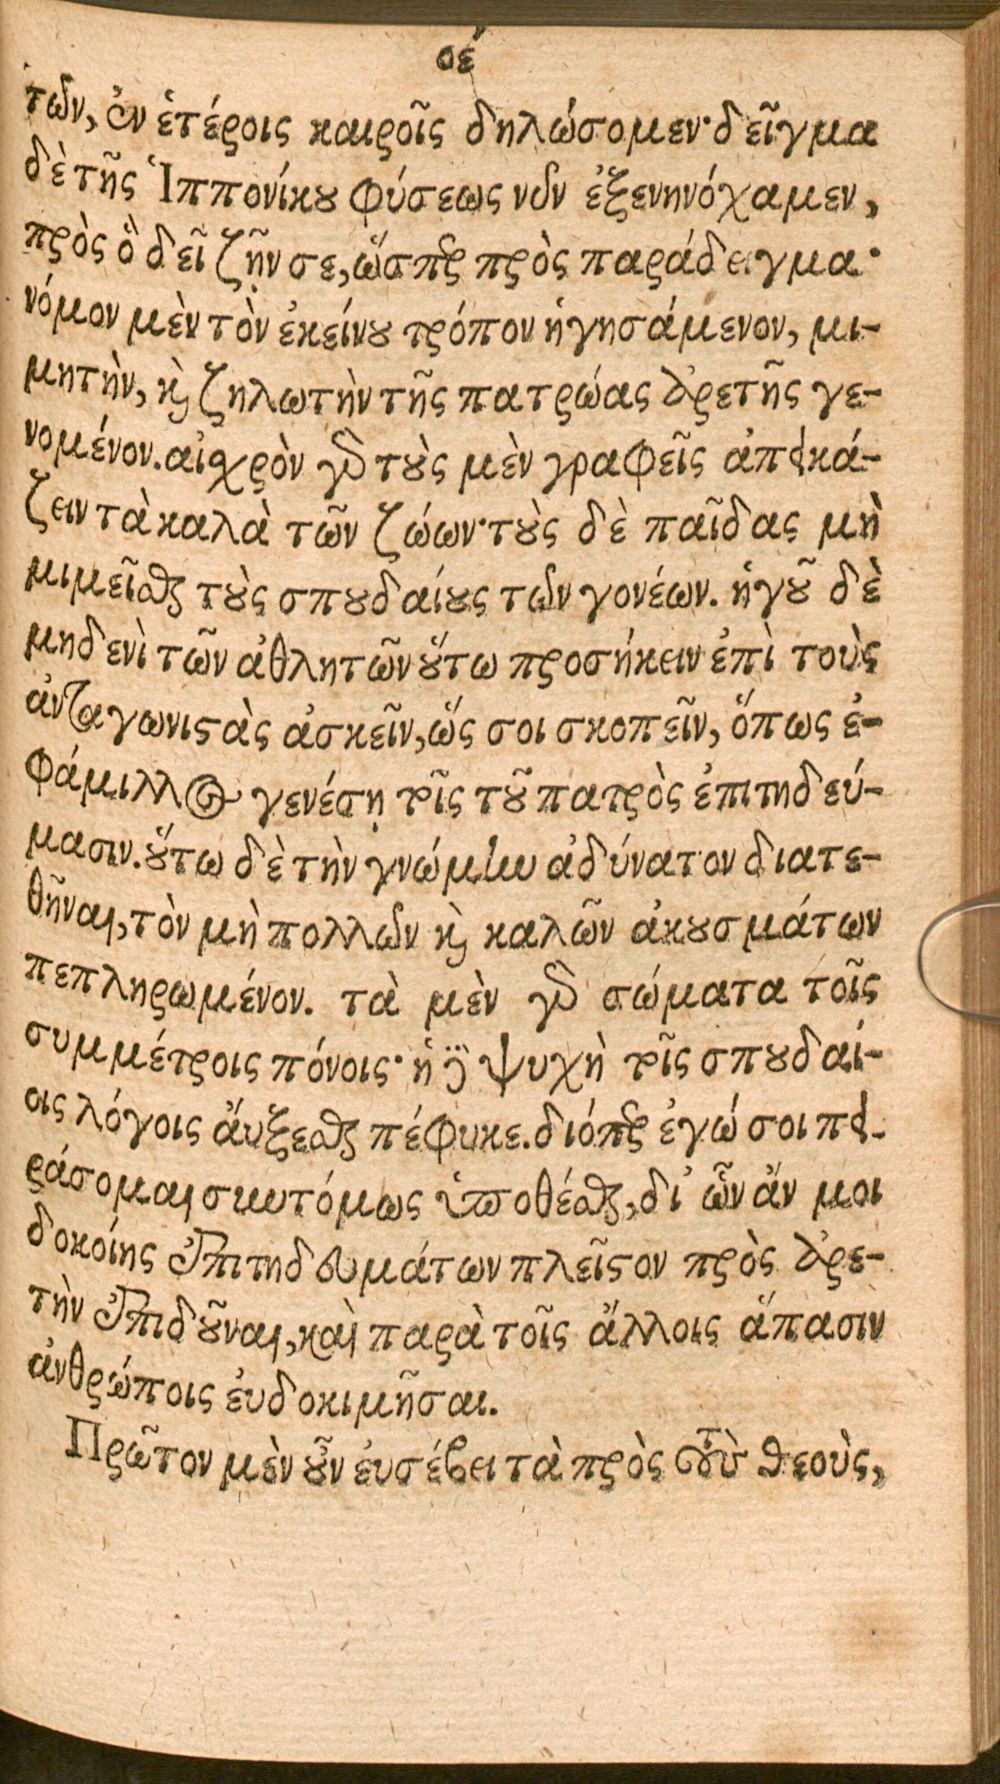 οέ
των, ἐν ἑτέροις καιροῖς δηλώσομεν· δεῖγμα
δὲ τῆς Ἱππονίκου φύσεως νῦν ἐξενηνόχαμεν,
πρὸς ὃ δεῖ ζῆν σε, ὥσπερ πρὸς παράδειγμα·
νόμον μὲν τὸν ἐκείνου τρόπον ἡγησάμενον, μι-
μητὴν, καὶ ζηλωτὴν τῆς πατρώας ἀρετῆς γε-
νομένον. αἰσχρὸν γὰρ τοὺς μὲν γραφεῖς ἀπεικά-
ζειν τὰ καλὰ τῶν ζώων· τοὺς δὲ παῖδας μὴ
μιμεῖσθαι τοὺς σπουδαίους τῶν γονέων. ἡγοῦ δὲ
μηδενὶ τῶν ἀθλητῶν οὕτω προσήκειν ἐπὶ τοὺς
ἀνταγωνιστὰς ἀσκεῖν, ὥς σοι σκοπεῖν, ὅπως ἐ-
φάμιλλος γενέσῃ τοῖς τοῦ πατρὸς ἐπιτηδεύ-
μασιν. οὕτω δὲ τὴν γνώμην ἀδύνατον διατε-
θῆναι, τὸν μὴ πολλῶν καὶ καλῶν ἀκουσμάτων
πεπληρωμένον. τὰ μὲν γὰρ σώματα τοῖς
συμμέτροις πόνοις· ἡ δὲ ψυχὴ τοῖς σπουδαί-
οις λόγοις ἄυξεσθαι πέφυκε. διόπερ ἐγώ σοι πει-
ράσομαι συντόμως ὑποθέσθαι, δι᾽ ὧν ἄν μοι
δοκοίης ἐπιτηδευμάτων πλεῖστον πρὸς ἀρε-
τὴν ἐπιδοῦναι, καὶ παρὰ τοῖς ἄλλοις ἅπασιν
ἀνθρώποις ἐυδοκιμῆσαι.
Πρῶτον μὲν οὖν ἐυσέβει τὰ πρὸς τοὺς θεοὺς,